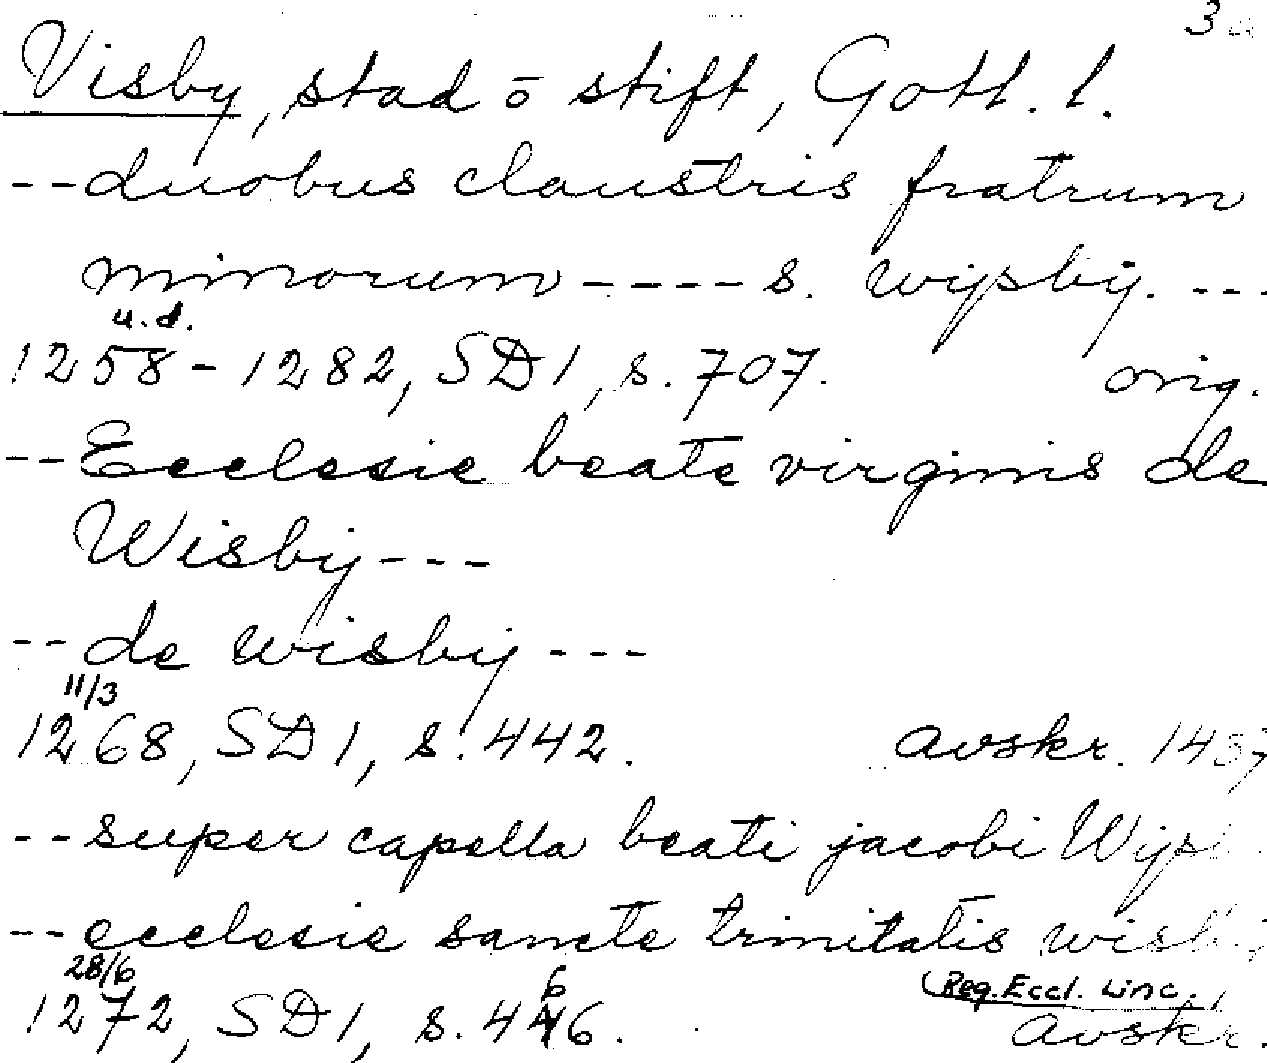 3
Visby, stad o stift, Gotl. l.
--duobus claustris fratrum
minorum----s. wijsbij. ---
u.d.
1258-1282, SD1, s. 707. orig.
--Ecclesie beate virginis de
Wisbij---
--de wisbij---
11/3
1268, SD1, s. 442. avskr. 1437
--super capella beati jacobi
--ecclesie sancte trinitatis
28/6
1272, SD1, s. 466. (Reg. Eccl. Linc.)
avskr.